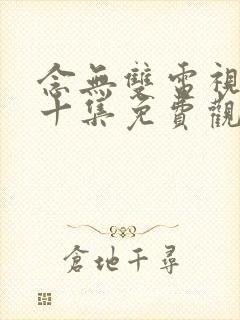 念無雙電視
十集免費觀
倉地千尋